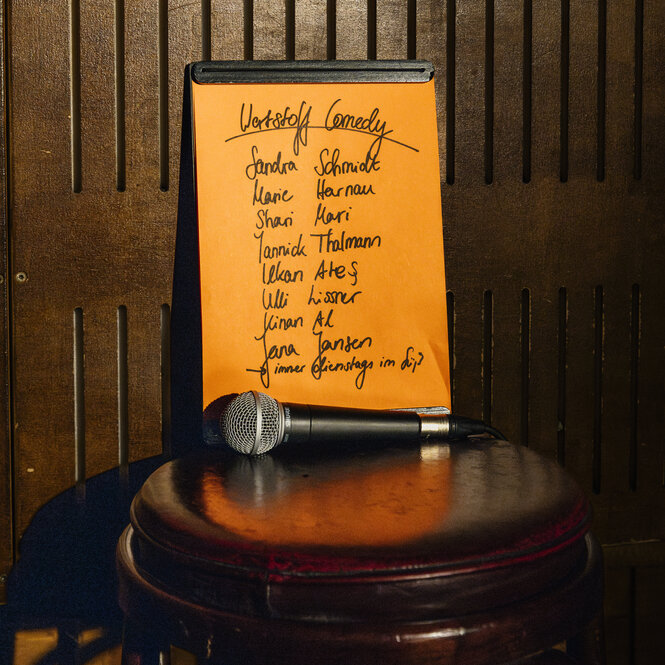 Wertstoff Comedy
Sandra Schmidt
Marie Harnau
Shari Mari
Yannick Thalmann
Ulkan Ateş
Ulli Lissner
Kinan Al
Jana Jansen
→ immer Dienstags im